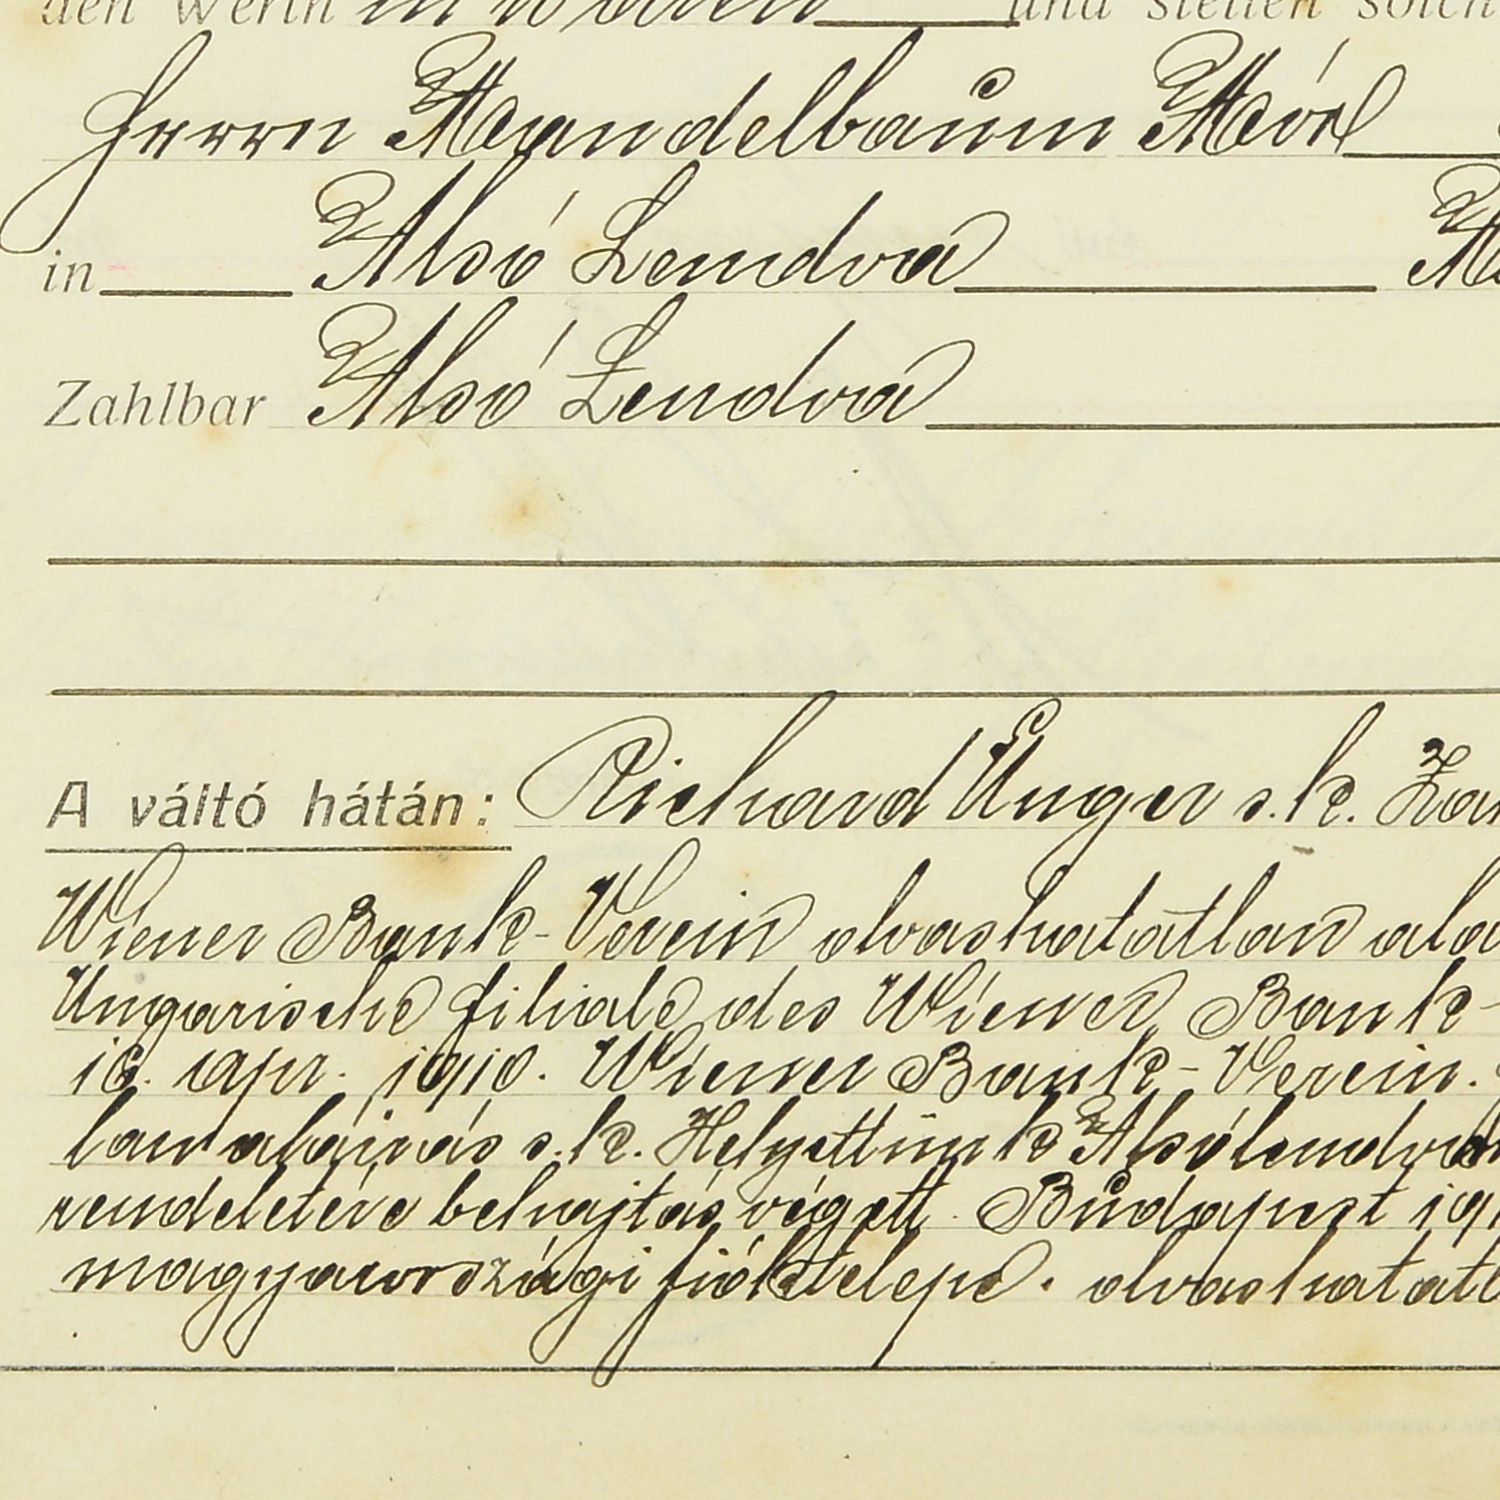 den Werth in Waaren und stellen solch
Herrn Mandelbaum Mór
in Alsó Lendva
Zahlbar Alsó Lendva
A váltó hátán: Richard Unger s.k.
Wiener Bank-Verein olvashatatlan alá
Ungarische Filiale des Wiener Bank-
16. apr. 1910. Wiener Bank-Verein.
lan aláirás s.k. Helyettünk Alsólendva
rendeletére behajtás végett. Budapest 191
magyarországi fióktelepe. olvashatatl